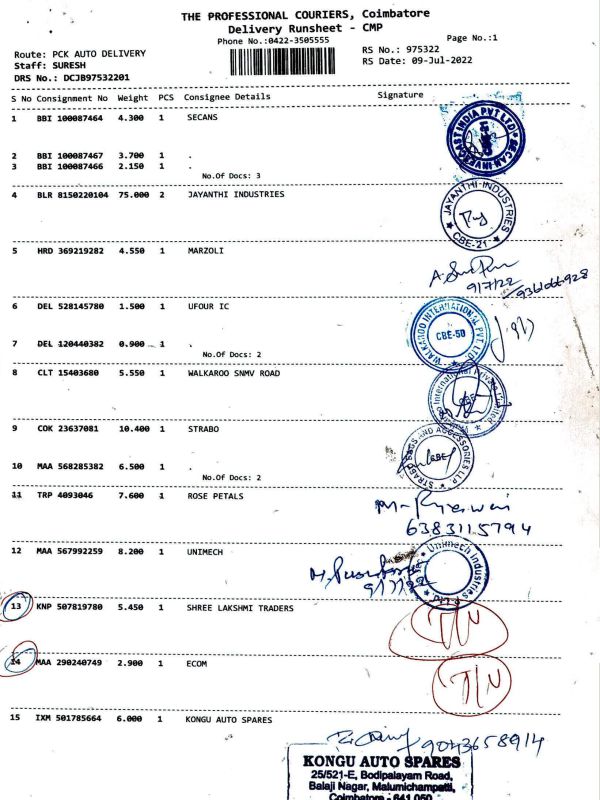 THE PROFESSIONAL COURIERS, Coimbatore
Delivery Runsheet - CMP
Phone No.:0422-3505555
Page No.:1
Route: PCK AUTO DELIVERY
RS No.: 975322
Staff: SURESH
RS Date: 09-Jul-2022
DRS No.: DCJB97532201
S No Consignment No Weight PCS Consignee Details Signature
1 BBI 100087464 4.300 1 SECANS
SECAN INVESCAST INDIA PVT LTD
2 BBI 100087467 3.700 1 .
3 BBI 100087466 2.150 1 .
No.Of Docs: 3
4 BLR 8150220104 75.000 2 JAYANTHI INDUSTRIES
JAYANTHI-INDUSTRIES
CBE-21
5 HRD 369219282 4.550 1 MARZOLI
9/7/22
6 DEL 528145780 1.500 1 UFOUR IC
WALKAROO INTERNATIONAL PVT. LTD
CBE-50
7 DEL 120440382 0.900 1 .
No.Of Docs: 2
8 CLT 15403680 5.550 1 WALKAROO SNMV ROAD
International Private Limited
9 COK 23637081 10.400 1 STRABO
STRABO BAGS AND ACCESSORIES LLP
CBE
10 MAA 568285382 6.500 1 .
No.Of Docs: 2
11 TRP 4093046 7.600 1 ROSE PETALS
6383115794
12 MAA 567992259 8.200 1 UNIMECH
Unimech Industries
Pvt. Ltd
9/7/22
13 KNP 507819780 5.450 1 SHREE LAKSHMI TRADERS
T/N
14 MAA 290240749 2.900 1 ECOM
T/N
15 IXM 501785664 6.000 1 KONGU AUTO SPARES
9043658914
KONGU AUTO SPARES
25/521-E, Bodipalayam Road,
Balaji Nagar, Malumichampatti,
Coimbatore - 641 050